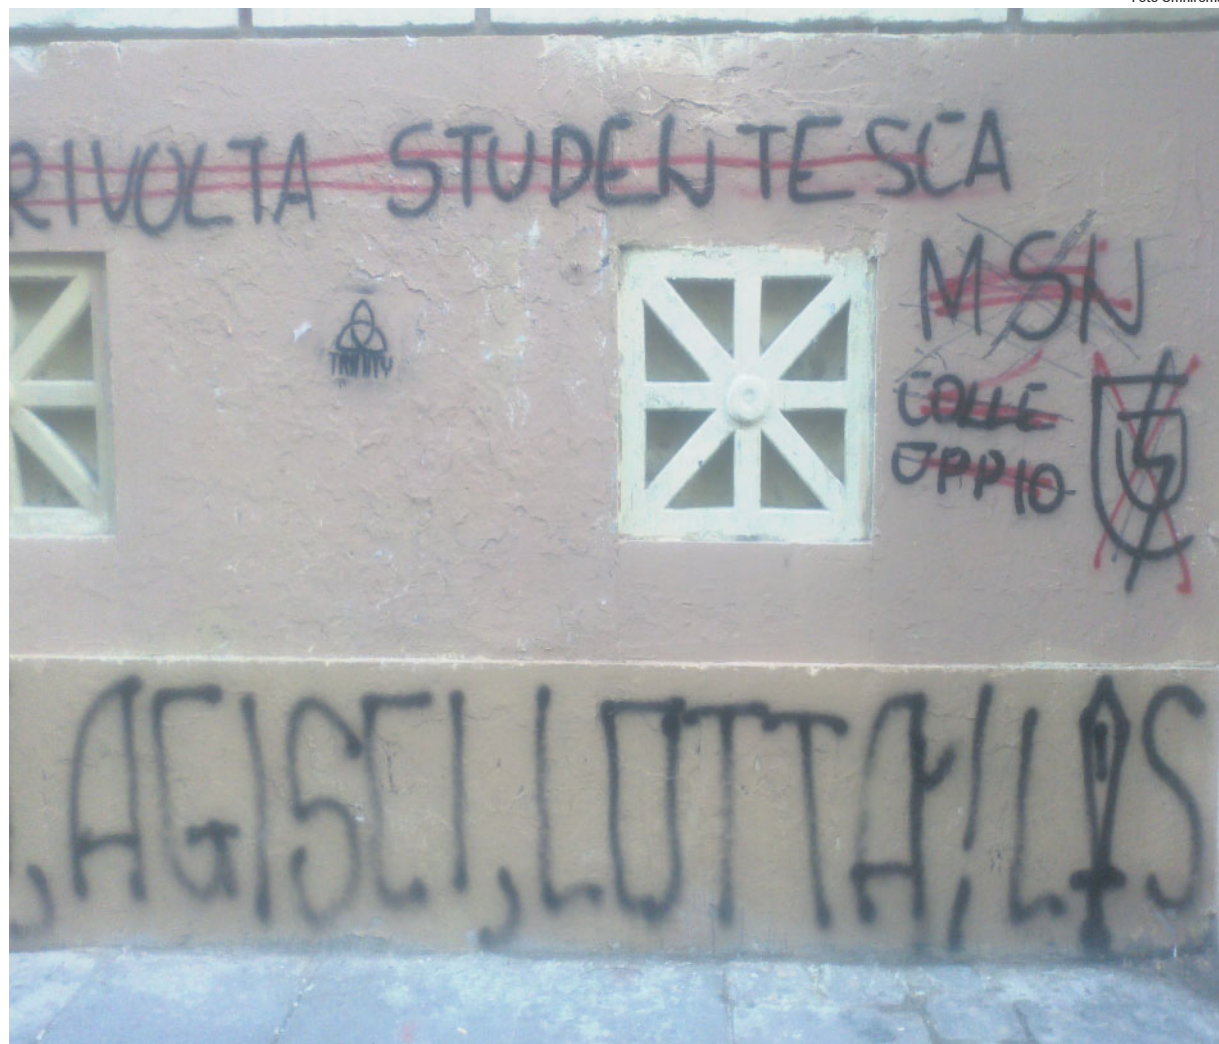 RIVOLTA STUDENTESCA
MSN
TRINITY
COLLE
OPPIO
, AGISCI, LOTTA! L S